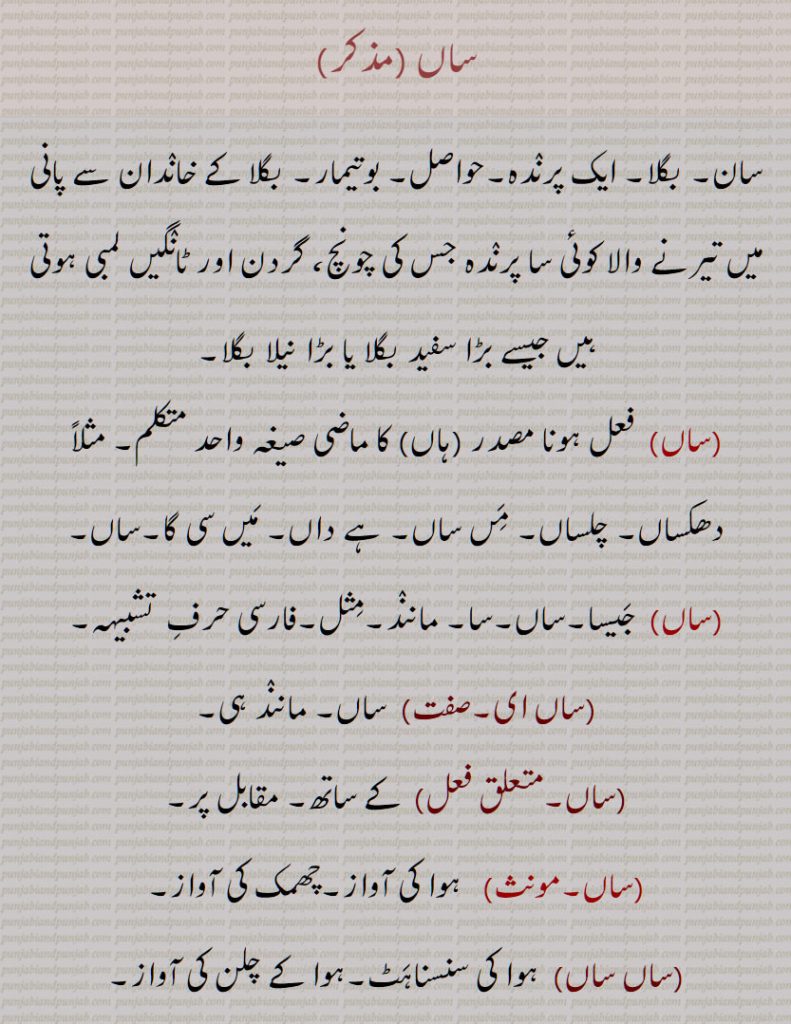 ساں (مذکر)
سان۔ بگلا۔ ایک پرنْدہ۔حواصل۔ بوتیمار۔ بگلا کے خانْدان سے پانی
میں تیرنے والا کوئی سا پرنْدہ جس کی چونْچ، گردن اور ٹانْگیں لمبی ہوتی
ہیں جیسے بڑا سفید بگلا یا بڑا نیلا بگلا۔
(ساں) فعل ہونا مصدر (ہاں) کا ماضی صیغہ واحد متکلم۔ مثلاً
دھکساں۔ چلساں۔ مَِس ساں۔ ہے داں۔ مَیں سی گا۔ساں۔
(ساں) جَیسا۔ساں۔سا۔ مانندْ۔مِثل۔فارسی حرفِ تشبیہہ۔
(ساں ای۔صفت) ساں۔ مانندْ ہی۔
(ساں۔متعلق فعل) کے ساتھ۔ مقابل پر۔
(ساں۔مونث) ہوا کی آواز۔چھمک کی آواز۔
(ساں ساں) ہوا کی سنسناہَٹ۔ہوا کے چلن کی آواز۔